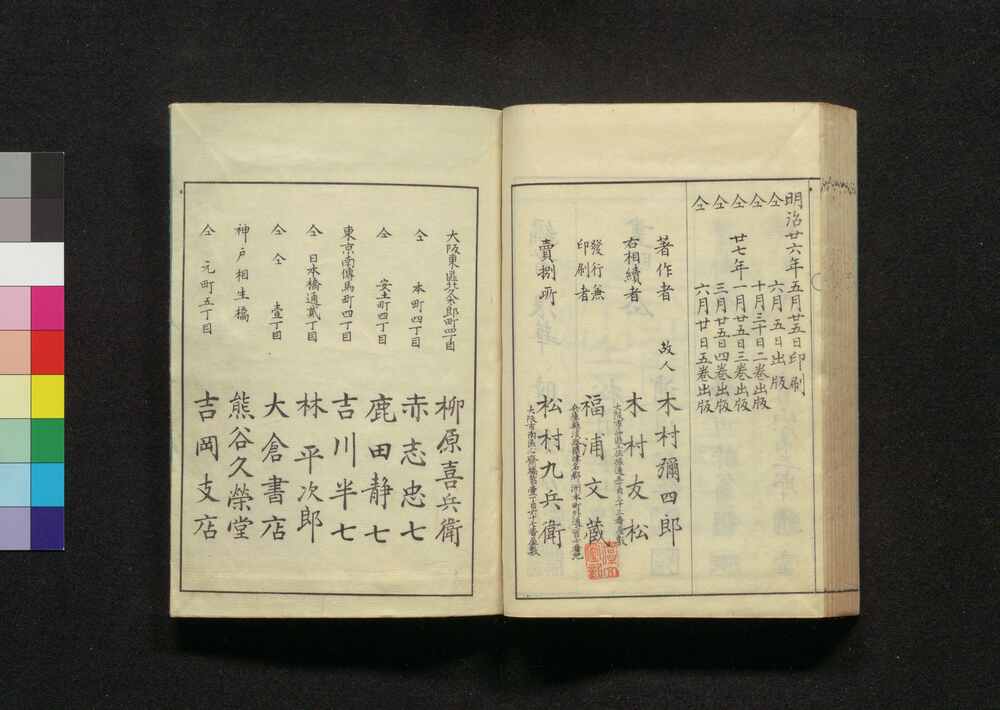 明治廿六年五月廿五日印刷
仝 六月五日出版
仝 十月三十日二巻出版
廿七年一月廿五日三巻出版
仝 三月廿五日四巻出版
仝 六月廿日五巻出版
著作者 故人 木村彌四郎
右相續者 木村友松
發行兼印刷者 福浦文藏
賣捌所 松村九兵衛
大阪市南區心齋橋筋壹丁目六十七番屋敷
大阪東區北久太郎町四丁目 柳原喜兵衛
仝 本町四丁目 赤志忠七
仝 安土町四丁目 鹿田静七
東京南傳馬町四丁目 吉川半七
仝 日本橋通貳丁目 林平次郎
仝 仝 壹丁目 大倉書店
神戸相生橋 熊谷久榮堂
仝 元町五丁目 吉岡支店